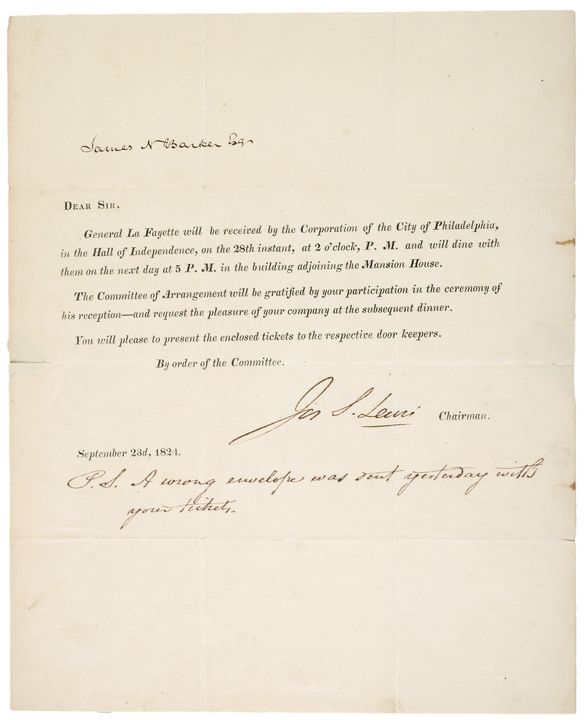 James N Barker Esqr
DEAR SIR,
General La Fayette will be received by the Corporation of the City of Philadelphia,
in the Hall of Independence, on the 28th instant, at 2 o'clock, P. M. and will dine with
them on the next day at 5 P. M. in the building adjoining the Mansion House.
The Committee of Arrangement will be gratified by your participation in the ceremony of
his reception—and request the pleasure of your company at the subsequent dinner.
You will please to present the enclosed tickets to the respective door keepers.
By order of the Committee.
Jos S. Lewis Chairman.
September 23d, 1824.
P. S. A wrong envelope was sent yesterday with
your tickets.